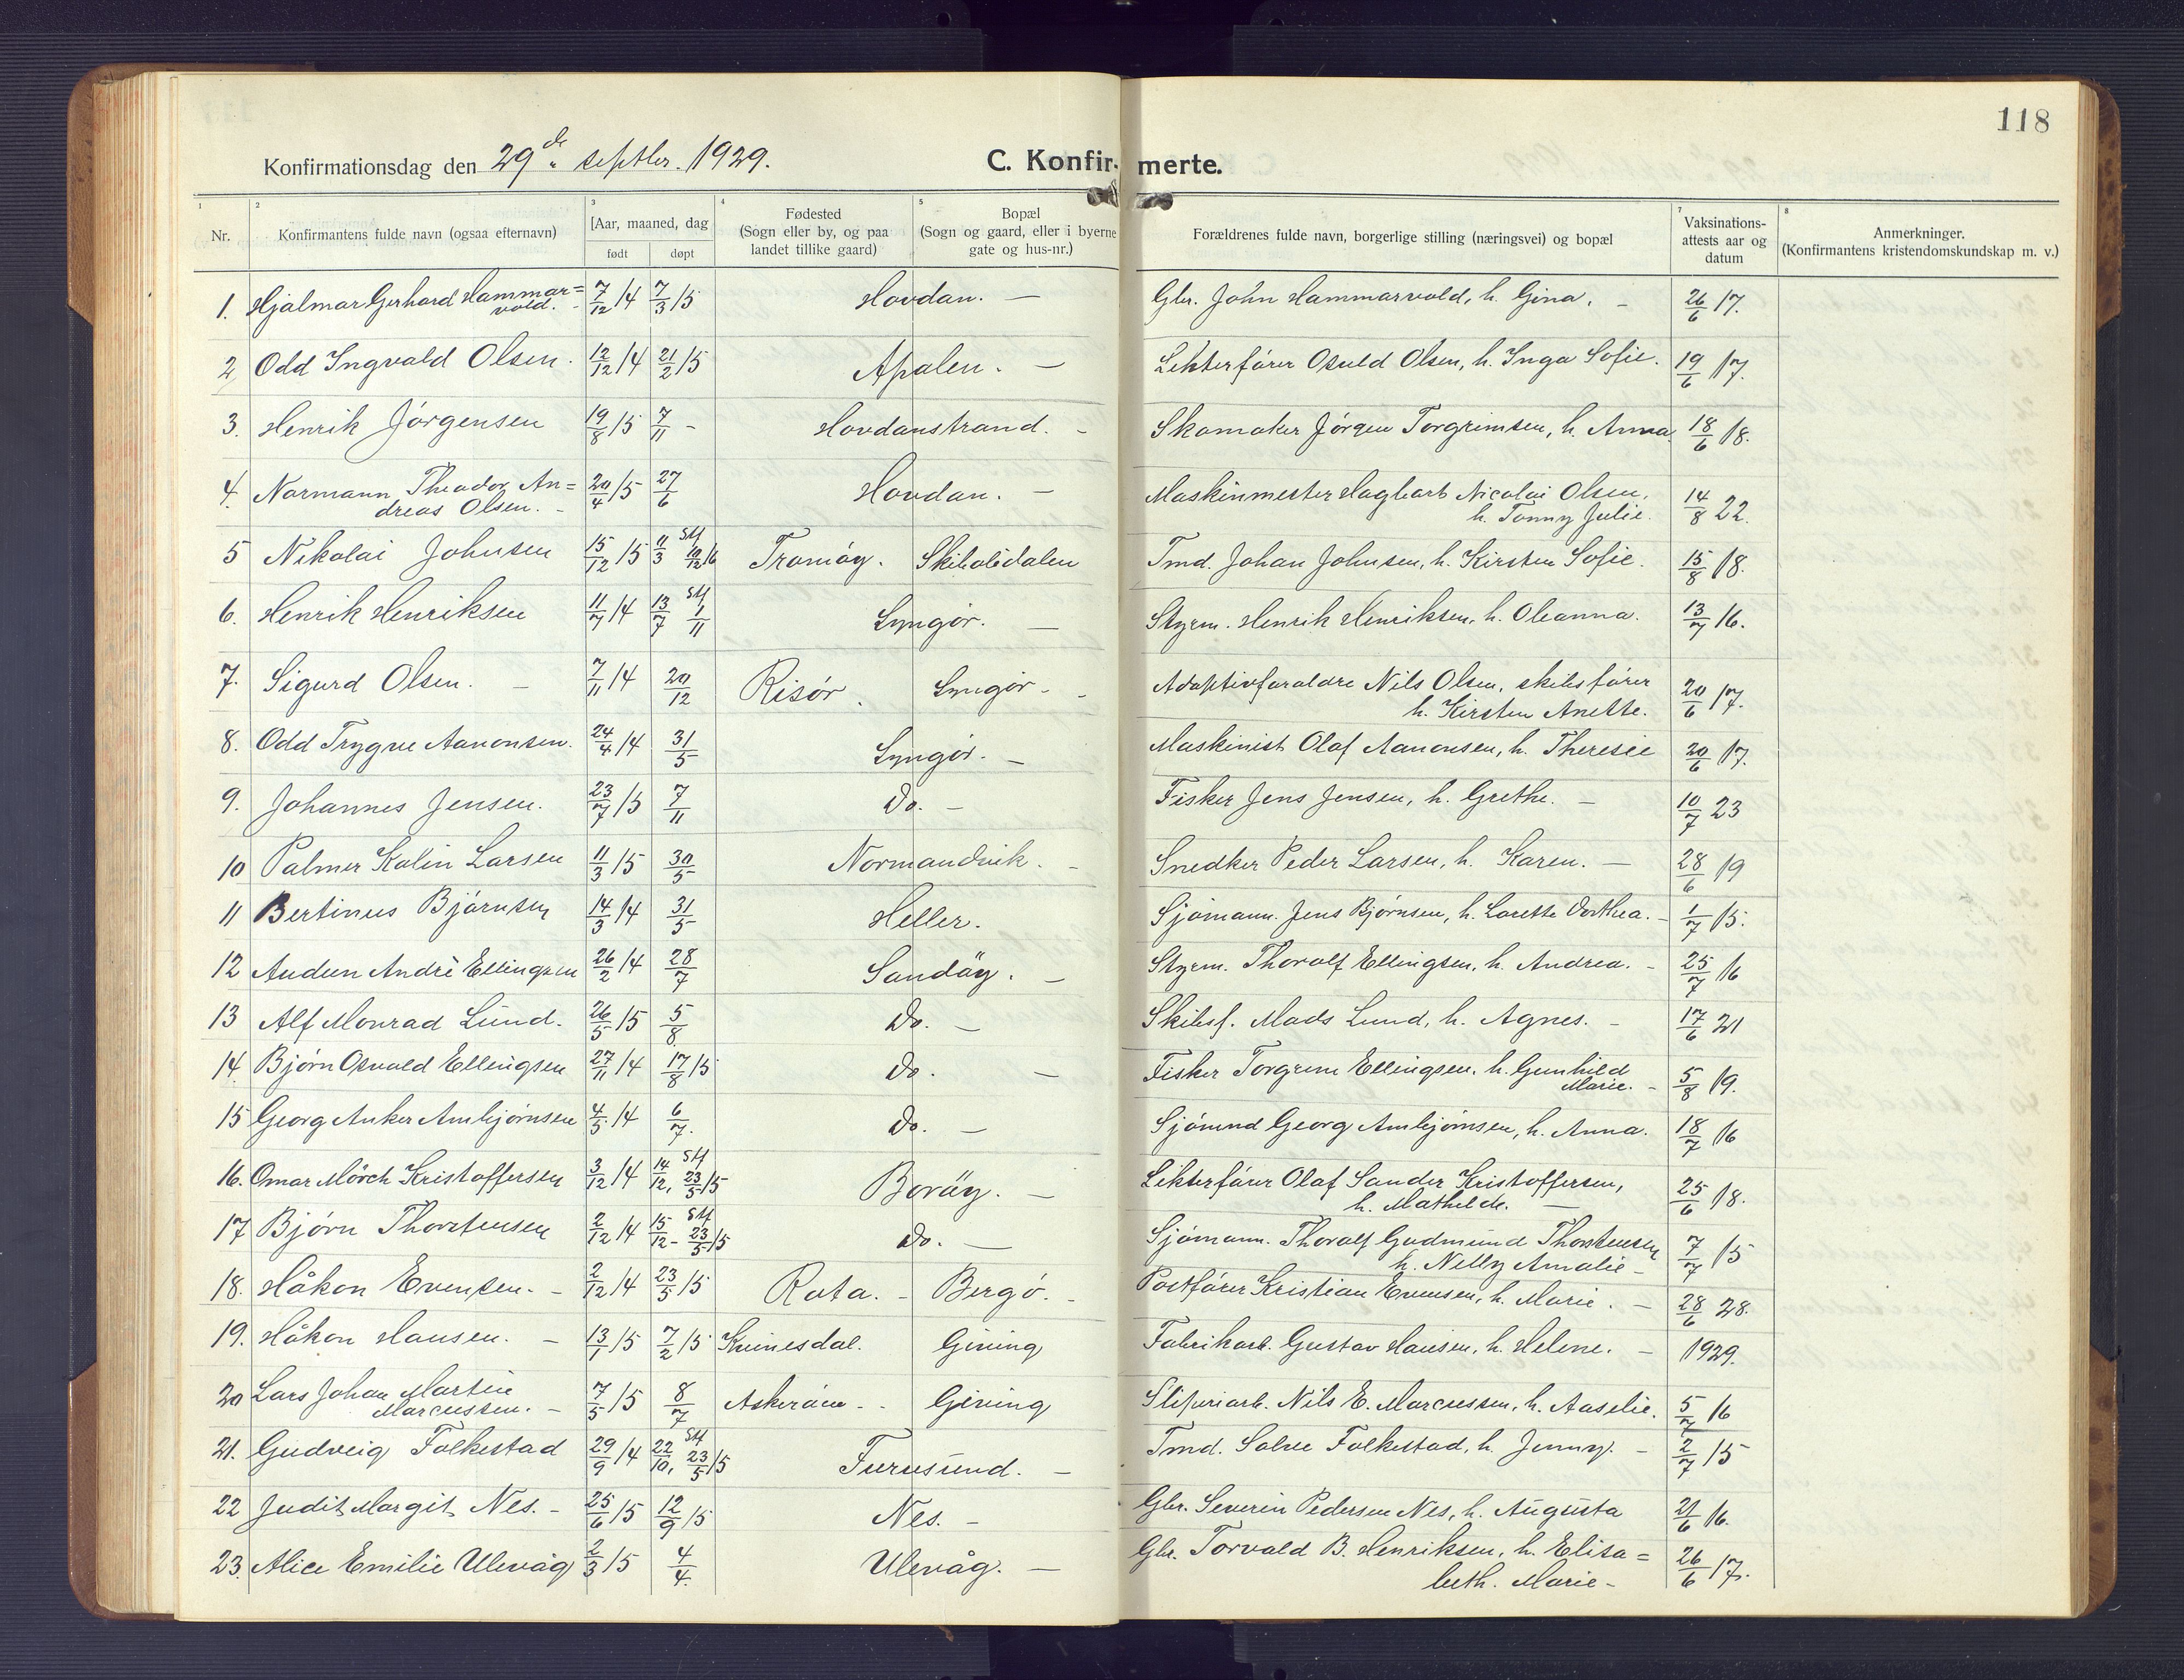 118
Konfirmationsdag den 29de septbr. 1929.
C. Konfirmerte.
1 2 3 4 5 7 8
Nr. Konfirmantens fulde navn (ogsaa efternavn) Aar, maaned, dag født døpt Fødested (Sogn eller by, og paa landet tillike gaard) Bopæl (Sogn og gaard, eller i byerne gate og hus-nr.) Forældrenes fulde navn, borgerlige stilling (næringsvei) og bopæl Vaksinations-attests aar og datum Anmerkninger. (Konfirmantens kristendomskundskap m. v.)
1. Hjalmar Gerhard Hammar=vold. - 7/12 14 7/3 15 Hovdan. — Gbr. John Hammarvold, h. Gina. - 26/6 17.
2 Odd Ingvald Olsen. 12/12 14 21/2 15 Apalen. — Lekterfører Osuld Olsen, h. Inga Sofie. 19/6 17.
3. Henrik Jørgensen 19/8 15 7/11 - Hovdanstrand. - Skomaker Jørgen Torgrimsen, h. Anna. 18/6 18.
4. Normann Theodor An=dreas Olsen. - 20/4 15 27/6 Hovdan. — Maskinmester Hagbart Nicolai Olsen, h. Tonny Julie. 14/8 22.
5 Nikolai Johnsen 15/12 15 11/3 st 10/12 16 Tromöy. Skibolidalen Tmd. Johan Johnsen, h. Kirsten Sofie. 15/8 18.
6. Henrik Henriksen 11/7 14 13/7 st 1/11 Lyngör. — Styrm. Henrik Henriksen, h. Oleanna. 13/7 16.
7. Sigurd Olsen. - 7/11 14 20/12 Risör. Lyngör - - Adoptivforældre Nils Olsen, skibsfører h. Kirsten Anette. 20/6 17.
8. Odd Trygve Aanonsen. 24/4 14 31/5 Lyngör. — Maskinist Olaf Aanonsen, h. Theresie 20/6 17.
9. Johannes Jensen. 23/7 15 7/11 Do. — Fisker Jens Jensen, h. Grethe. — 10/7 23
10 Palmer Kolin Larsen 11/3 15 30/5 Normandvik. - Snedker Peder Larsen, h. Karen. — 28/6 19
11 Bertinus Björnsen 14/3 14 31/5 Heller. Sjömann. Jens Bjørnsen, h. Lorette Dorthea. - 1/7 15.
12 Audun Andrè Ellingsen 26/2 14 28/7 Sandöy. — Styrm. Thoralf Ellingsen, h. Andrea. - 25/7 16
13 Alf Monrad Lund. 26/5 15 5/8 Do. — Skibsf. Mads Lund, h. Agnes. - 17/6 21
14. Bjørn Osvald Ellingsen 27/11 14 17/8 15 Do. — Fisker Torgrim Ellingsen, h. Gunhild Marie. - 5/8 19.
15 Georg Anker Ambjørnsen 4/5 14 6/7. Do. — Sjömnd Georg Ambjørnsen, h. Anna. 18/7 16
16. Omar Mörch Kristoffersen 3/12 14 14/12, st 23/5 15 Boröy. — Lekterfører Olaf Sander Kristoffersen, h. Mathilde. — 25/6 18.
17 Bjørn Thorstensen 2/12 14 15/12 - st 23/5 15 Do. — Sjömann. Thoralf Gudmund Thorstensen h. Nelly Amalie - 7/7 15
18. Håkon Evensen. - 2/12 14 23/5 15 Rota. - Bergö. - Postfører Kristian Evensen, h. Marie. - 28/6 28.
19. Håkon Hansen. — 13/1 15 7/2 15 Kvinesdal. Giving Fabrikarb. Gustav Hansen, h. Helene. - 1929.
20 Lars Johan Martin Marcussen. - 7/5 15 8/7 Giving Sliperiarb. Nils E. Marcussen, h. Aaselie. 5/7 16
21. Gudveig Folkestad 29/9 14 22/10, st 23/5 15 Furusund. — Tmd. Solve Folkestad, h. Jenny. - 2/7 15
22 Judit Margit Nes. - 25/6 15 12/9 15 Nes. - Gbr. Severin Pedersen Nes, h. Augusta 21/6 16.
23. Alice Emilie Ulevåg 2/3 15 4/4. Ulevåg. — Gbr. Torvald B. Henriksen, h. Elisa=beth. Marie - 26/6 17.